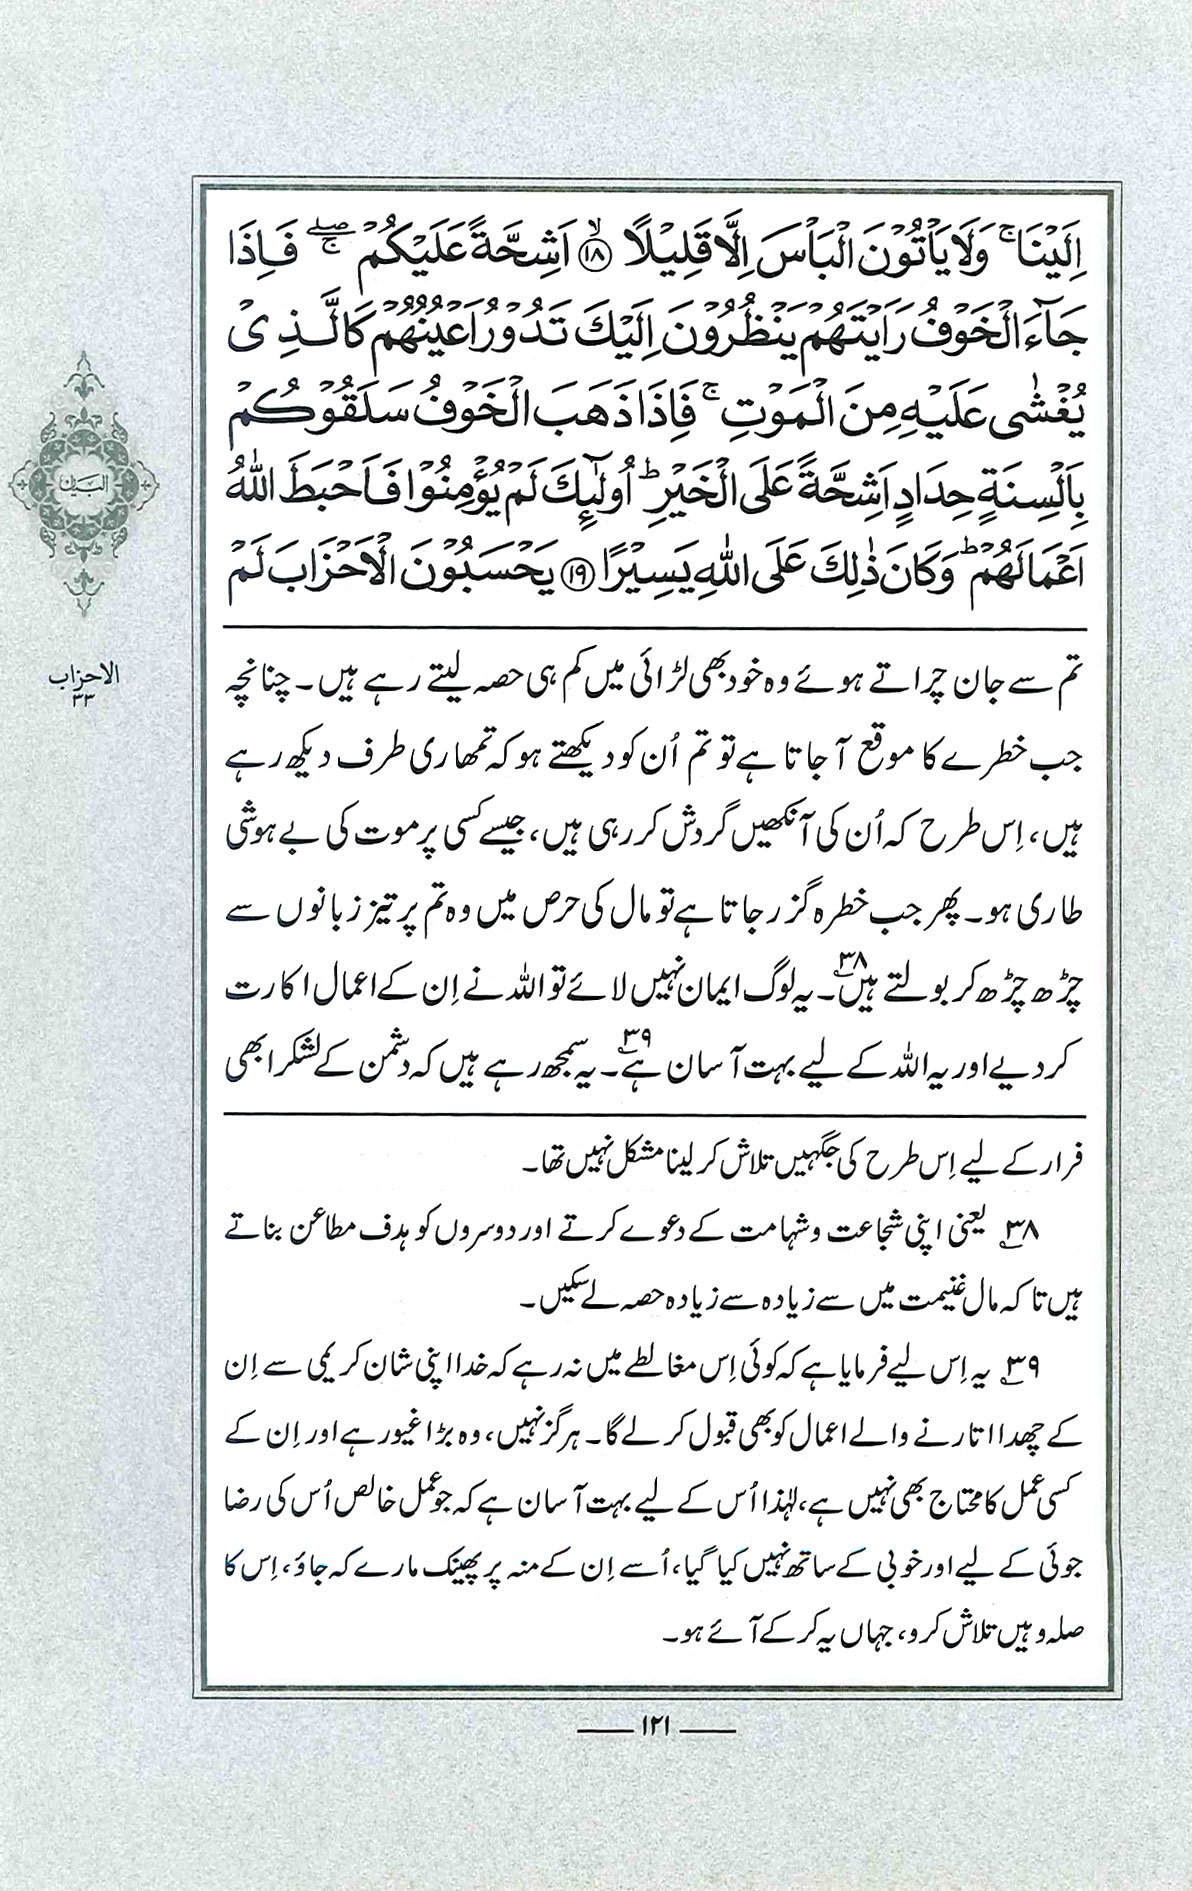 اِلَيْنَا ۚ وَلَا يَاْتُوْنَ الْبَاْسَ اِلَّا قَلِيْلًا ۙ﴿۱۸﴾ اَشِحَّةً عَلَيْكُمْ ۖۚ فَاِذَا
جَآءَ الْخَوْفُ رَاَيْتَهُمْ يَنْظُرُوْنَ اِلَيْكَ تَدُوْرُ اَعْيُنُهُمْ كَالَّذِىْ
يُغْشٰى عَلَيْهِ مِنَ الْمَوْتِ ۚ فَاِذَا ذَهَبَ الْخَوْفُ سَلَقُوْكُمْ
بِاَلْسِنَةٍ حِدَادٍ اَشِحَّةً عَلَى الْخَيْرِ ؕ اُولٰٓئِكَ لَمْ يُؤْمِنُوْا فَاَحْبَطَ اللّٰهُ
اَعْمَالَهُمْ ؕ وَكَانَ ذٰلِكَ عَلَى اللّٰهِ يَسِيْرًا ﴿۱۹﴾ يَحْسَبُوْنَ الْاَحْزَابَ لَمْ
البیان
الاحزاب
۳۳
تم سے جان چراتے ہوئے وہ خود بھی لڑائی میں کم ہی حصہ لیتے رہے ہیں۔ چنانچہ
جب خطرے کا موقع آجاتا ہے تو تم اُن کو دیکھتے ہو کہ تمھاری طرف دیکھ رہے
ہیں، اِس طرح کہ اُن کی آنکھیں گردش کر رہی ہیں، جیسے کسی پر موت کی بے ہوشی
طاری ہو۔ پھر جب خطرہ گزر جاتا ہے تو مال کی حرص میں وہ تم پر تیز زبانوں سے
چڑھ چڑھ کر بولتے ہیں۳۸۔ یہ لوگ ایمان نہیں لائے تو اللہ نے اِن کے اعمال اکارت
کر دیے اور یہ اللہ کے لیے بہت آسان ہے۳۹۔ یہ سمجھ رہے ہیں کہ دشمن کے لشکر ابھی
فرار کے لیے اِس طرح کی جگہیں تلاش کر لینا مشکل نہیں تھا۔
۳۸ یعنی اپنی شجاعت و شہامت کے دعوے کرتے اور دوسروں کو ہدف مطاعن بناتے
ہیں تا کہ مال غنیمت میں سے زیادہ سے زیادہ حصہ لے سکیں۔
۳۹ یہ اِس لیے فرمایا ہے کہ کوئی اِس مغالطے میں نہ رہے کہ خدا اپنی شان کریمی سے اِن
کے چھدا اتارنے والے اعمال کو بھی قبول کر لے گا۔ ہرگز نہیں، وہ بڑا غیور ہے اور اِن کے
کسی عمل کا محتاج بھی نہیں ہے، لہٰذا اُس کے لیے بہت آسان ہے کہ جو عمل خالص اُس کی رضا
جوئی کے لیے اور خوبی کے ساتھ نہیں کیا گیا، اُسے اِن کے منہ پر پھینک مارے کہ جاؤ، اِس کا
صلہ وہیں تلاش کرو، جہاں یہ کر کے آئے ہو۔
۱۲۱